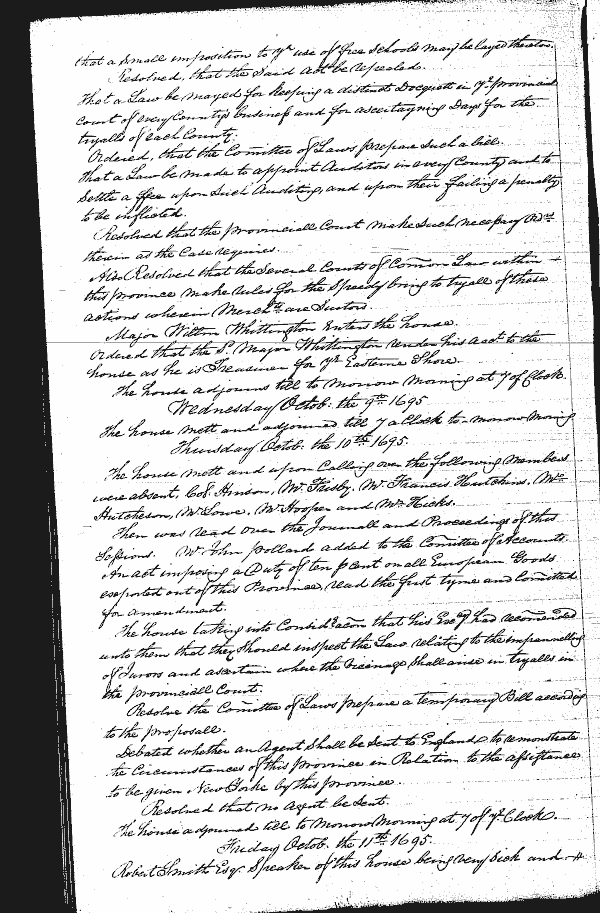 that a small imposition to ye use of free schools may be layed thereton.
Resolved, that the said act be repealed.
That a Law be mayed for keeping a distinct Docquett in ye provinciall
Court of every Countys business and for ascertayning Days for the
tryalls of each County.
Ordered, that the Comittee of Laws prepare such a bill.
That a Law be made to appoint Auditors in every County and to
settle a ffee upon such Auditing, and upon their failing a penalty
to be inflicted.
Resolved that the Provinciall Court make such necessary Ords
therein as the Case requires.
Also Resolved that the Several Courts of Comon Law within
this province make rules for the Speedy bring to tryall of these
actions wherein Merchts are Suitors.
Major Willm Whittington Enters the house.
Ordered that the Sd. Major Whittington render his acct. to the
house as he is Treasurer for ye Easterne Shore.
The house adjourns till to morrow Morning at 7 of Clock.
Wednesday Octob. the 9th 1695
The house mett and adjourned till 7 a Clock to-morrow Morning
Thursday Octob. the 10th 1695.
The house mett and upon Calling over the following members
were absent, Col. Hinson, Mr. Frisby, Mr Francis Hutchins, Mr
Hutcheson, Mr Lowe, Mr Hooper and Mr Hicks.
Then was read over the Journall and Proceedings of this
Sessions. Mr John Pollard added to the Comittee of Accounts.
An act imposing a Duty of ten p Cent on all European Goods
exported out of this Province, read the first tyme and Comitted
for amendment.
The house taking into Consideracon that his Excy had recomended
unto them that they Should inspect the Law relating to the impannelling
of Jurors and ascertain where the Vicinage Shall arise in tryalls in
the Provinciall Court.
Resolve the Comittee of Laws prepare a temporary Bill according
to the proposall.
Debated whether an Agent Shall be Sent to England to remonstrate
the Circumstances of this Province in Relation to the assistance
to be given New Yorke by this province.
Resolved that no Agent be Sent.
The house adjourned till to Morrow Morning at 7 of ye Clock.
Friday Octob. the 11th 1695.
Robert Smith Esqr. Speaker of this house being very Sick and